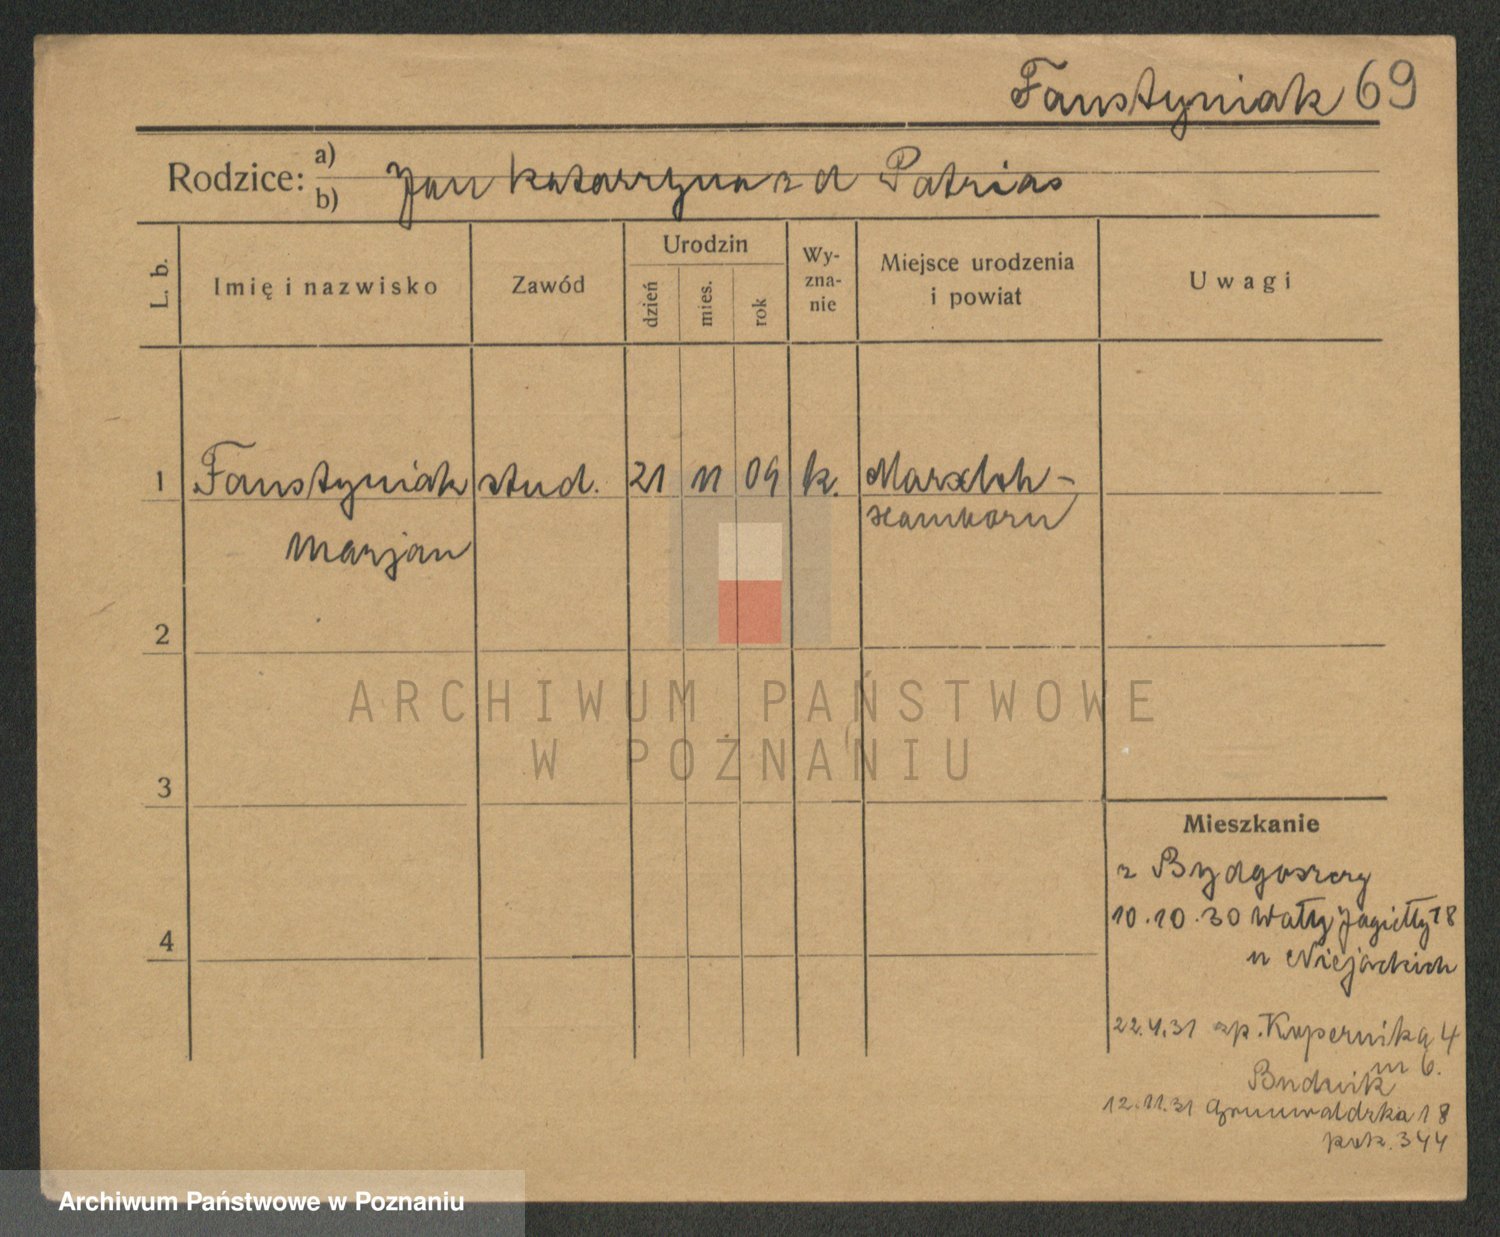 Faustyniak 69
Rodzice: a) b) Jan Katarzyna z d Patrias
L. b.
Imię i nazwisko
Zawód
Urodzin
dzień
mies.
rok
Wy-
zna-
nie
Miejsce urodzenia
i powiat
Uwagi
1 Faustyniak stud. 21 11 09 k. Marxloh-
Hamborn
Marjan
2
ARCHIWUM PAŃSTWOWE
W POZNANIU
3
Mieszkanie
z Bydgoszczy
4
10.10.30 Wały Jagiełły 18
u
22.4.31 sp. Kopernika 4
m 6.
12.11.31 Grunwaldzka 18
pok. 344
Archiwum Państwowe w Poznaniu